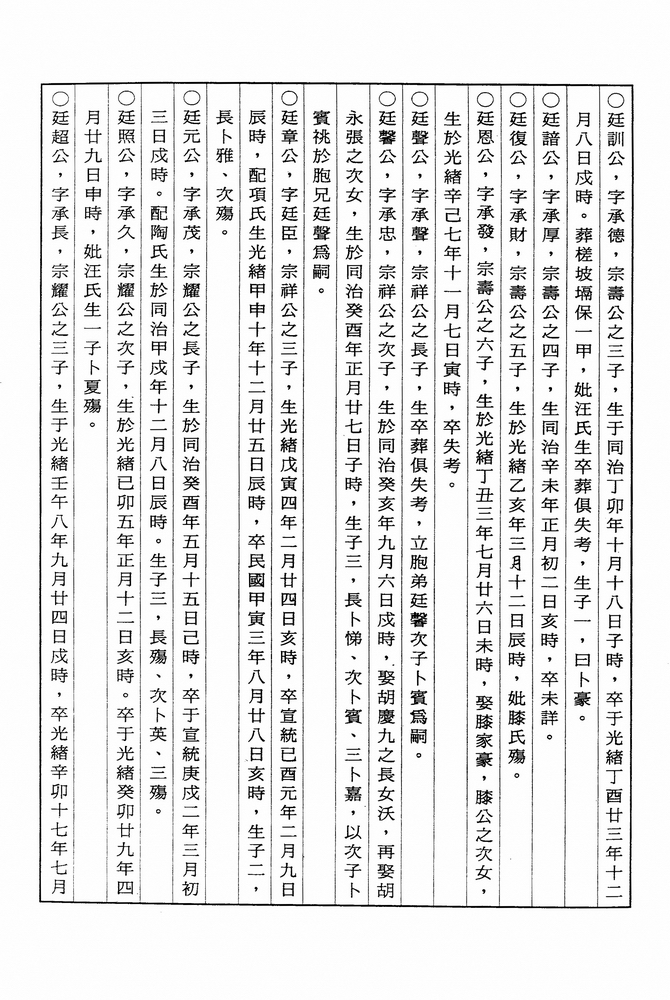 ○廷訓公，字承德，宗壽公之三子，生于同治丁卯年十月十八日子時，卒于光緒丁酉廿三年十二
月八日戍時。葬槎坡塥保一甲，妣汪氏生卒葬俱失考，生子一，曰卜豪。
○廷諳公，字承厚，宗壽公之四子，生同治辛未年正月初二日亥時，卒未詳。
○廷復公，字承財，宗壽公之五子，生於光緒乙亥年三月十二日辰時，妣滕氏殤。
○廷恩公，字承發，宗壽公之六子，生於光緒丁丑三年七月廿六日未時，娶滕家豪，滕公之次女，
生於光緒辛己七年十一月七日寅時，卒失考。
○廷聲公，字承聲，宗祥公之長子，生卒葬俱失考，立胞弟廷馨次子卜賓爲嗣。
○廷馨公，字承忠，宗祥公之次子，生於同治癸亥年九月六日戍時，娶胡慶九之長女沃，再娶胡
永張之次女，生於同治癸酉年正月廿七日子時，生子三，長卜悌、次卜賓、三卜嘉，以次子卜
賓祧於胞兄廷聲爲嗣。
○廷章公，字廷臣，宗祥公之三子，生光緒戊寅四年二月廿四日亥時，卒宣統已酉元年二月九日
辰時，配項氏生光緒甲申十年十二月廿五日辰時，卒民國甲寅三年八月廿八日亥時，生子二，
長卜雅、次殤。
○廷元公，字承茂，宗耀公之長子，生於同治癸酉年五月十五日己時，卒于宣統庚戍二年三月初
三日戍時。配陶氏生於同治甲戍年十二月八日辰時。生子三，長殤、次卜英、三殤。
○廷照公，字承久，宗耀公之次子，生於光緒已卯五年正月十二日亥時。卒于光緒癸卯廿九年四
月廿九日申時，妣汪氏生一子卜夏殤。
○廷超公，字承長，宗耀公之三子，生于光緒壬午八年九月廿四日戍時，卒光緒辛卯十七年七月